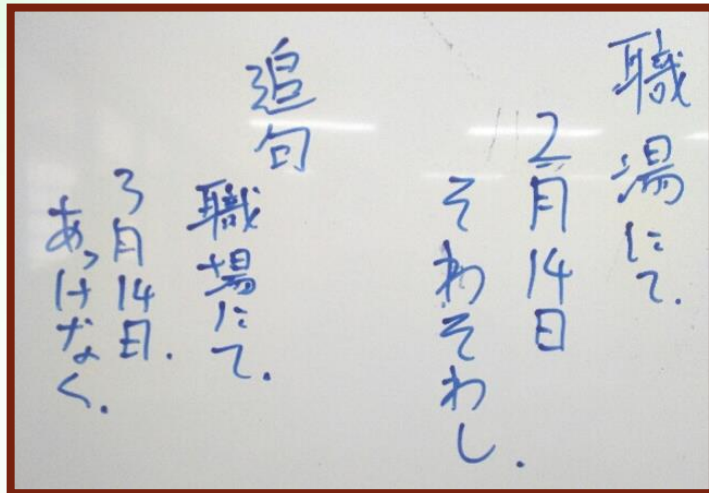 職場にて.
2月14日
そわそわし.
追句
職場にて.
3月14日.
あっけなく.